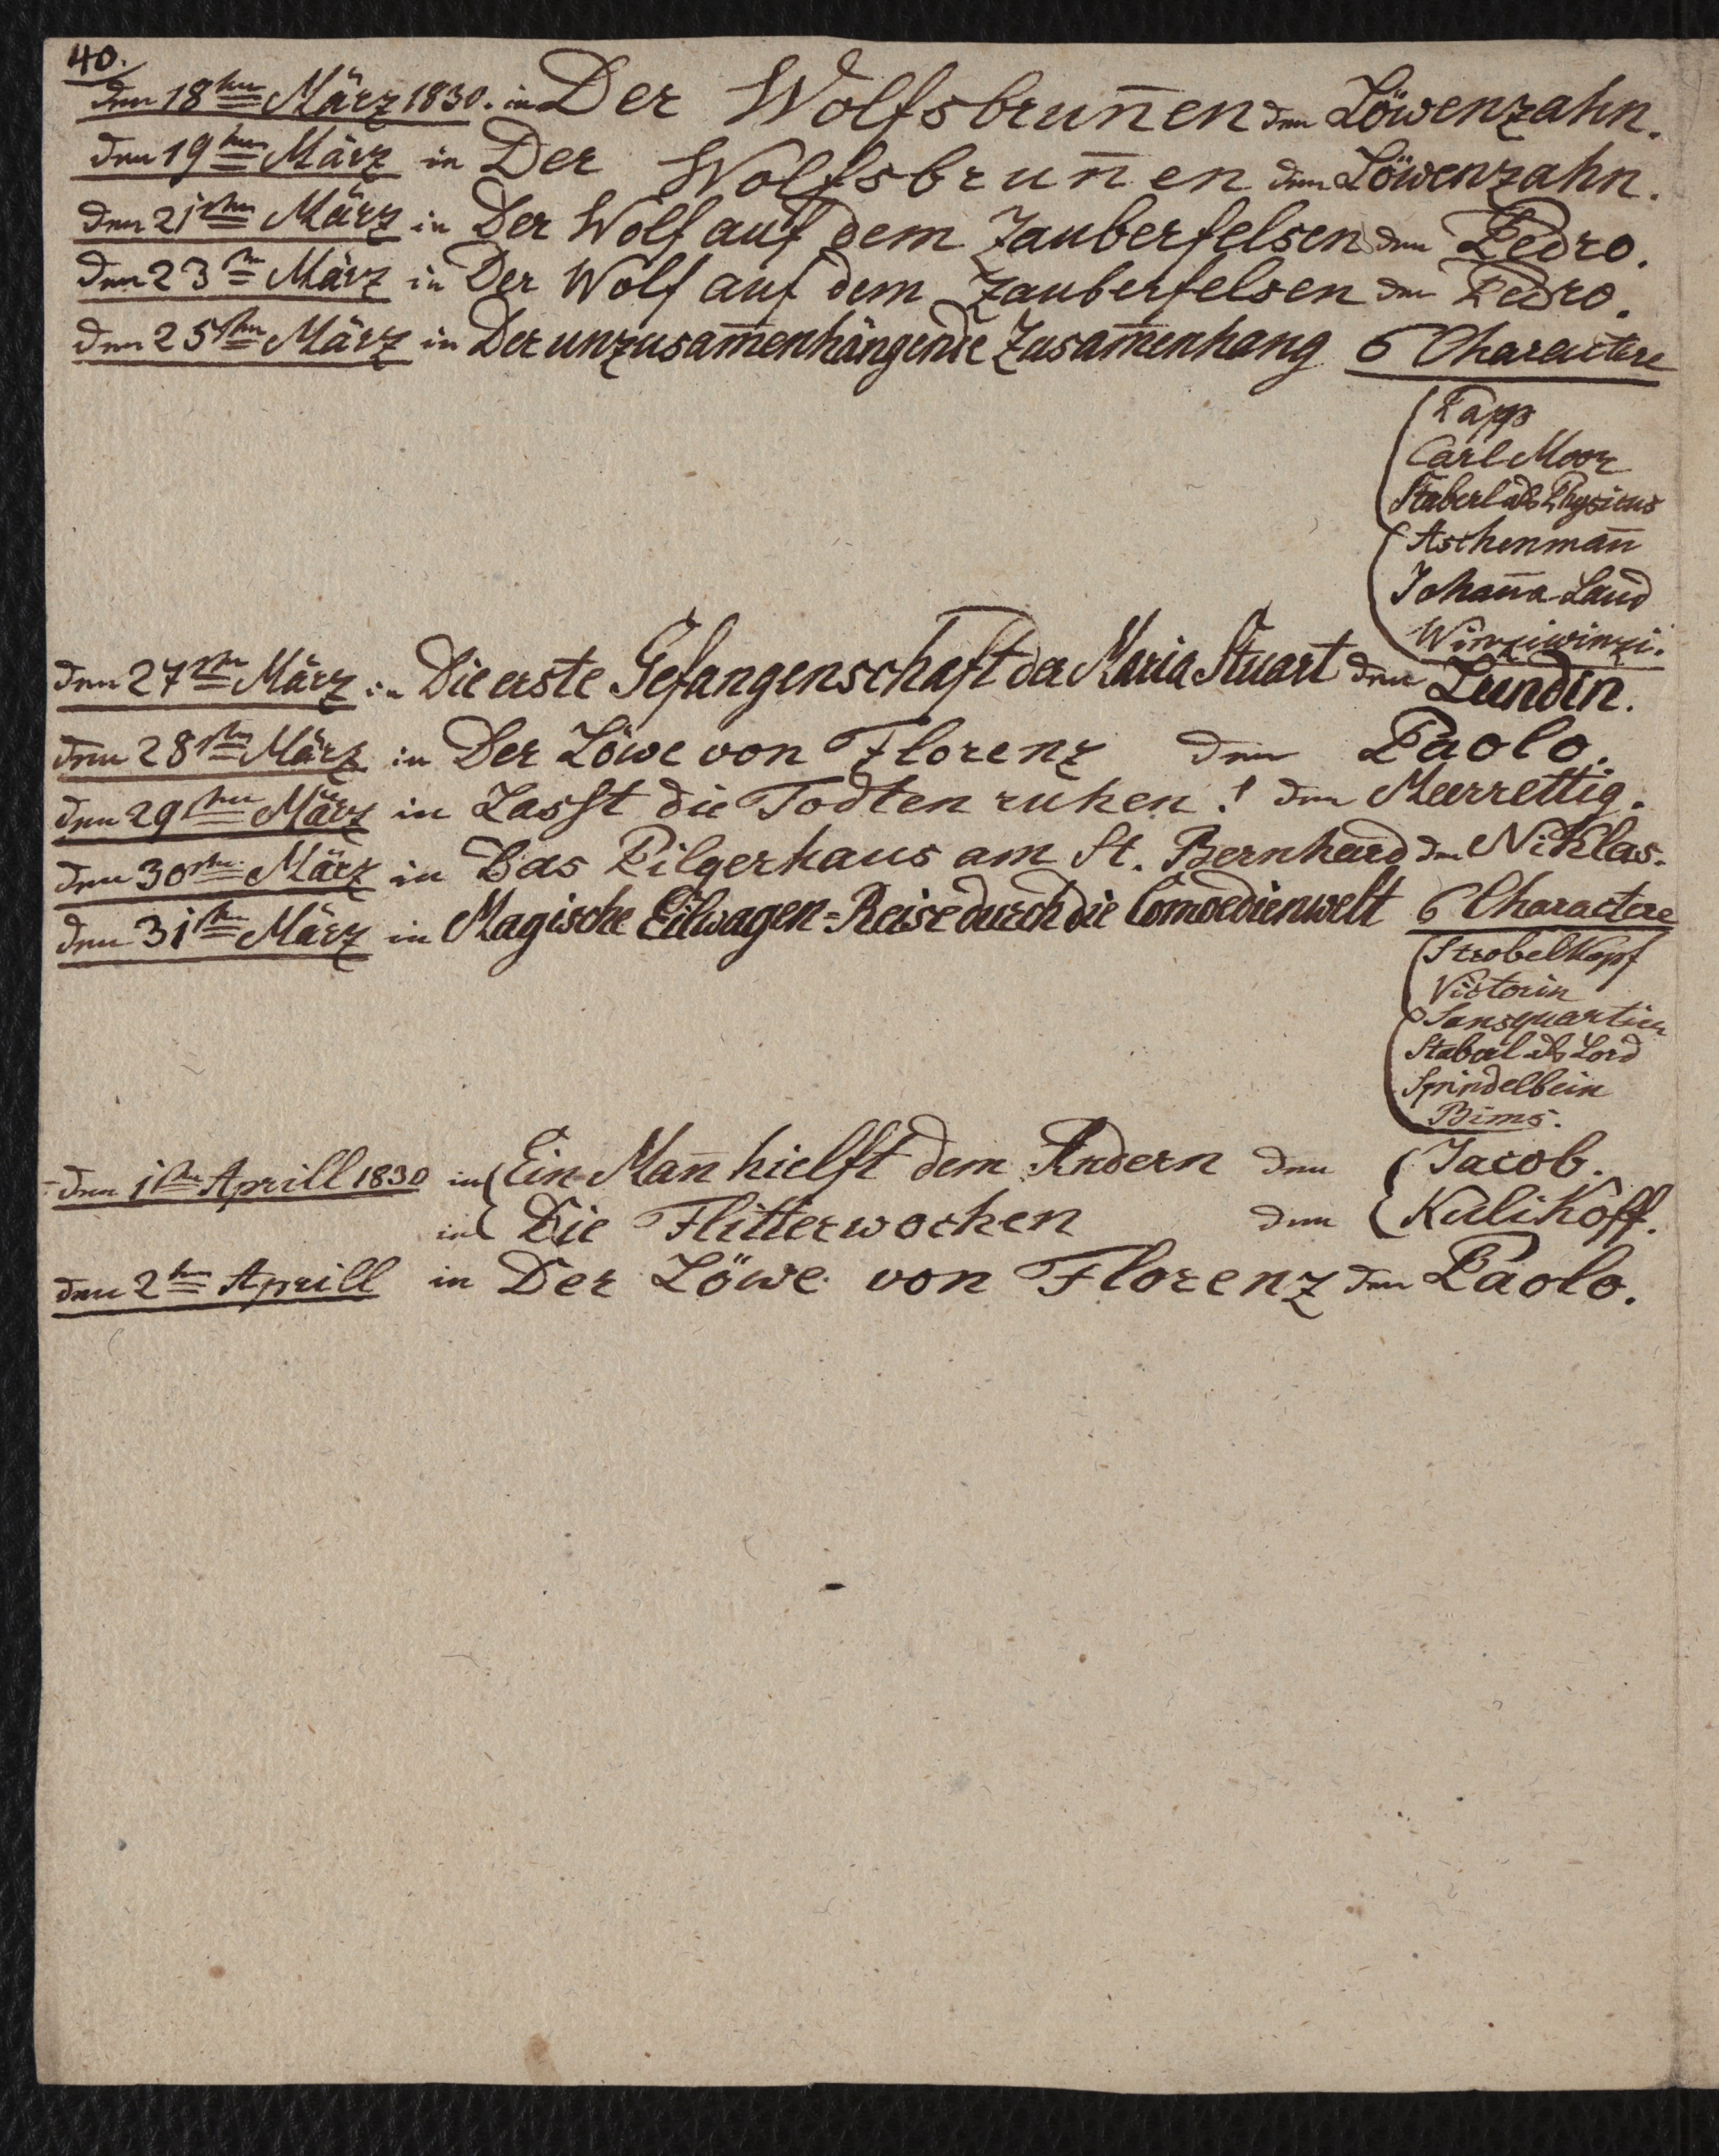 40.
den 18ten März 1830. in Der Wolfsbrun̅en den Löwenzahn.
den 19ten März in Der Wolfsbrun̅en den Löwenzahn.
den 21ten März in Der Wolf auf dem Zauberfelsen den Pedro.
den 23ten März in Der Wolf auf dem Zauberfelsen den Pedro.
den 25ten März in Der unzusam̅enhängende Zusam̅enhang 6 Charactere
Rapp
Carl Moor
Staberl als Physicus
Aschenman̅
Johan̅a Laud
Winziwinzi.
den 27ten März in Die erste Gefangenschaft der Maria Stuart den Lundin.
den 28ten März in Der Löwe von Florenz den Paolo.
den 29ten März in Lasst die Todten ruhen! den Meerrettig.
den 30ten März in Das Pilgerhaus am St. Bernhard den Niklas.
den 31ten März in Magische Eilwagen=Reise durch die Comoedienwelt 6 Charactere
Strobelkopf
Victorin
Sansquartier
Staberl als Lord
Spindelbein
Bims.
den 1ten Aprill 1830 in Ein Man̅ hielft dem Andern den Jacob.
in Die Flitterwochen den Kulikoff.
den 2ten Aprill in Der Löwe von Florenz den Paolo.